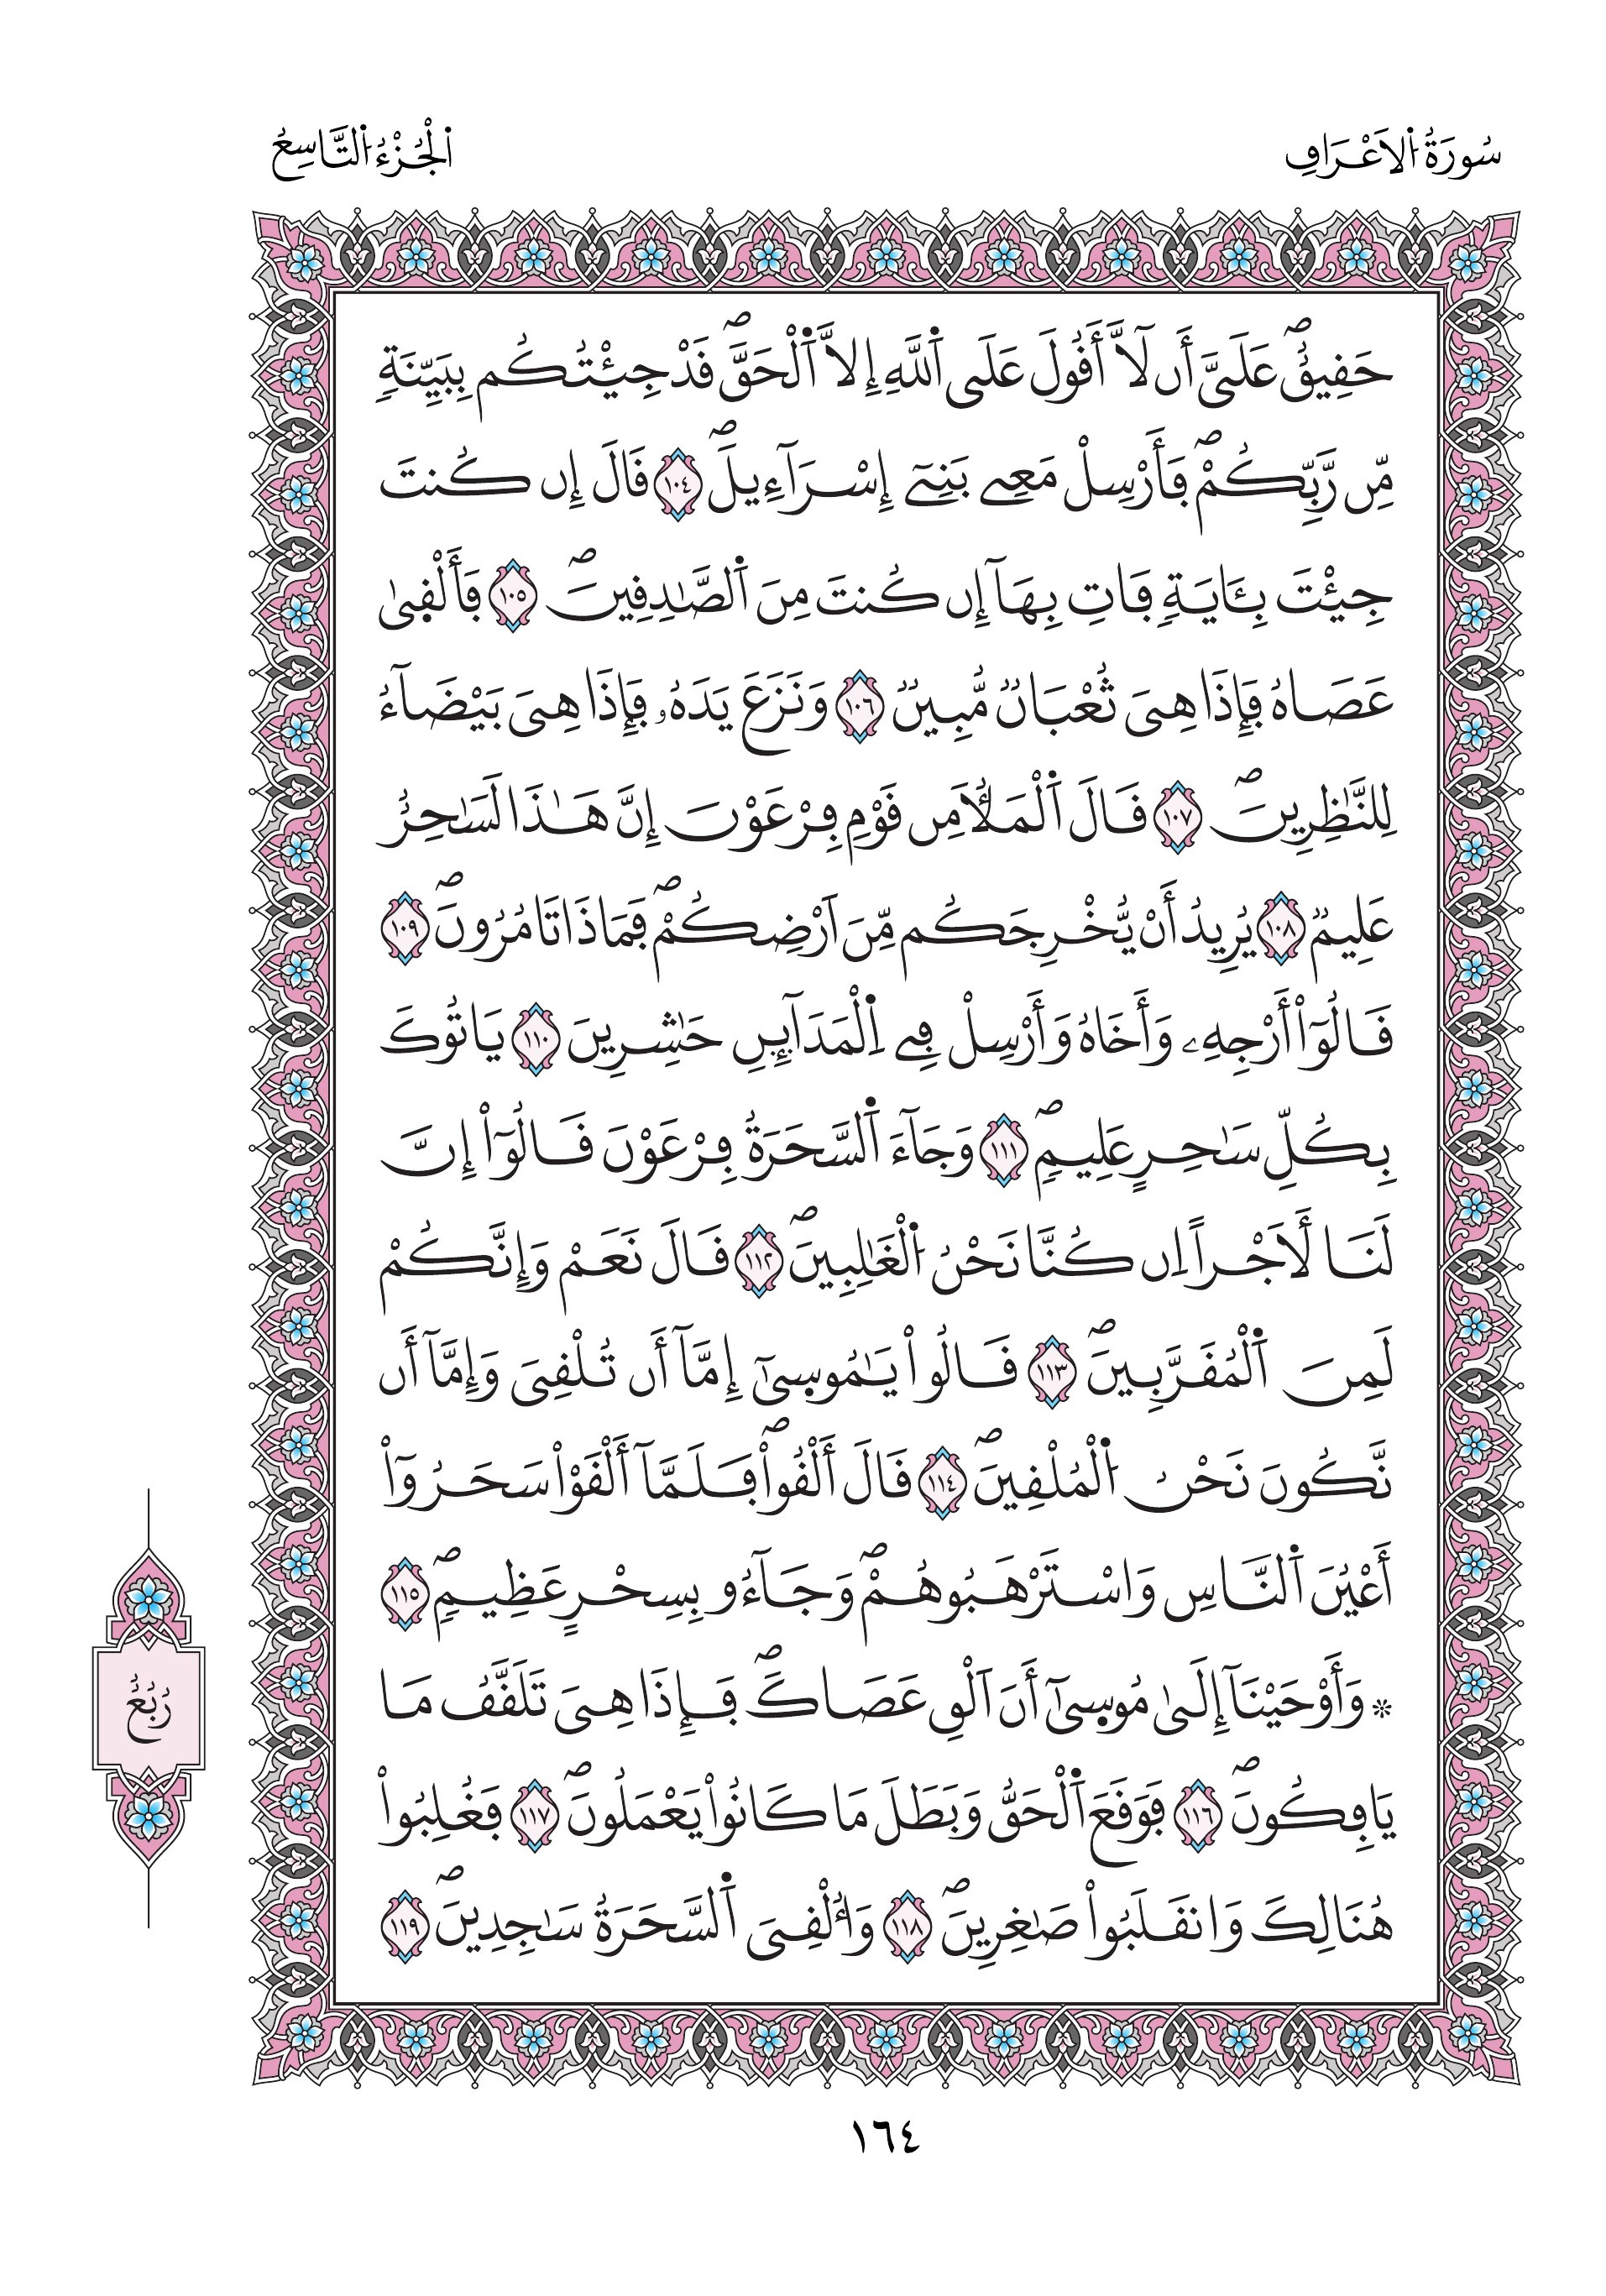 سُورَةُ الَاعْرَافِ
الْجُزْءُ التَّاسِعُ
حَقِيقٌ عَلَيَّ أَن لَّآ أَقُولَ عَلَى اَ۬للَّهِ إِلَّا اَ۬لْحَقَّۖ قَدْ جِئْتُكُم بِبَيِّنَةٖ
مِّن رَّبِّكُمْۖ فَأَرْسِلْ مَعِے بَنِےٓ إِسْرَآءِيلَۖ ١٠٤ قَالَ إِن كُنتَ
جِئْتَ بِـَٔايَةٖ فَاتِ بِهَآ إِن كُنتَ مِنَ اَ۬لصَّٰدِقِينَۖ ١٠٥ فَأَلْق۪يٰ
عَصَاهُ فَإِذَا هِيَ ثُعْبَانٞ مُّبِينٞ ١٠٦ وَنَزَعَ يَدَهُۥ فَإِذَا هِيَ بَيْضَآءُ
لِلنَّٰظِرِينَۖ ١٠٧ قَالَ اَ۬لْمَلَأُ مِن قَوْمِ فِرْعَوْنَ إِنَّ هَٰذَا لَسَٰحِرٌ
عَلِيمٞ ١٠٨ يُرِيدُ أَنْ يُّخْرِجَكُم مِّنَ اَرْضِكُمْۖ فَمَاذَا تَامُرُونَۖ ١٠٩
قَالُوٓاْ أَرْجِهِۦ وَأَخَاهُ وَأَرْسِلْ فِے اِ۬لْمَدَآئِنِ حَٰشِرِينَ ١١٠ يَاتُوكَ
بِكُلِّ سَٰحِرٍ عَلِيمٖۖ ١١١ وَجَآءَ اَ۬لسَّحَرَةُ فِرْعَوْنَ قَالُوٓاْ إِنَّ
لَنَا لَأَجْراً اِن كُنَّا نَحْنُ اُ۬لْغَٰلِبِينَۖ ١١٢ قَالَ نَعَمْ وَإِنَّكُمْ
لَمِنَ اَ۬لْمُقَرَّبِينَۖ ١١٣ قَالُواْ يَٰمُوس۪يٰٓ إِمَّآ أَن تُلْقِيَ وَإِمَّآ أَن
نَّكُونَ نَحْنُ اُ۬لْمُلْقِينَۖ ١١٤ قَالَ أَلْقُواْۖ فَلَمَّآ أَلْقَوْاْ سَحَرُوٓاْ
أَعْيُنَ اَ۬لنَّاسِ وَاسْتَرْهَبُوهُمْۖ وَجَآءُو بِسِحْرٍ عَظِيمٖۖ ١١٥
۞ وَأَوْحَيْنَآ إِلَىٰ مُوس۪يٰٓ أَنَ اَلْقِ عَصَاكَۖ فَإِذَا هِيَ تَلَقَّفُ مَا
يَافِكُونَۖ ١١٦ فَوَقَعَ اَ۬لْحَقُّ وَبَطَلَ مَا كَانُواْ يَعْمَلُونَۖ ١١٧ فَغُلِبُواْ
هُنَالِكَ وَانقَلَبُواْ صَٰغِرِينَۖ ١١٨ وَأُلْقِيَ اَ۬لسَّحَرَةُ سَٰجِدِينَۖ ١١٩
رُبُعٌ
١٦٤